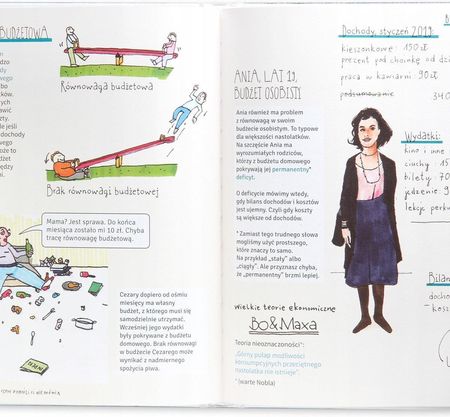 BUDŻETOWA
Równowaga budżetowa
Brak równowagi budżetowej
Mama? Jest sprawa. Do końca
miesiąca zostało mi 10 zł. Chyba
tracę równowagę budżetową.
Cezary dopiero od ośmiu
miesięcy ma własny
budżet, z którego musi się
samodzielnie utrzymać.
Wcześniej jego wydatki
były pokrywane z budżetu
domowego. Brak równowagi
w budżecie Cezarego może
wynikać z nadmiernego
spożycia piwa.
ANIA, LAT 19,
BUDŻET OSOBISTY
Ania również ma problem
z równowagą w swoim
budżecie osobistym. To typowe
dla większości nastolatków.
Na szczęście Ania ma
wyrozumiałych rodziców,
którzy z budżetu domowego
pokrywają jej permanentny*
deficyt.
O deficycie mówimy wtedy,
gdy bilans dochodów i kosztów
jest ujemny. Czyli gdy koszty
są większe od dochodów.
* Zamiast tego trudnego słowa
mogliśmy użyć prostszego,
które znaczy to samo.
Na przykład „stały” albo
„ciągły”. Ale przyznasz chyba,
że „permanentny” brzmi lepiej.
Wielkie teorie ekonomiczne
Bo&Maxa
Teoria nieoznaczoności*:
"Górny pułap możliwości
konsumpcyjnych przeciętnego
nastolatka nie istnieje".
* (warte Nobla)
Dochody, styczeń 2019
kieszonkowe: 150 zł
prezent pod choinkę od
praca w kawiarni 90 zł
podsumowanie
340
Wydatki:
kino i inne
ciuchy 15
bilety: 70
jedzenie 9
lekcje